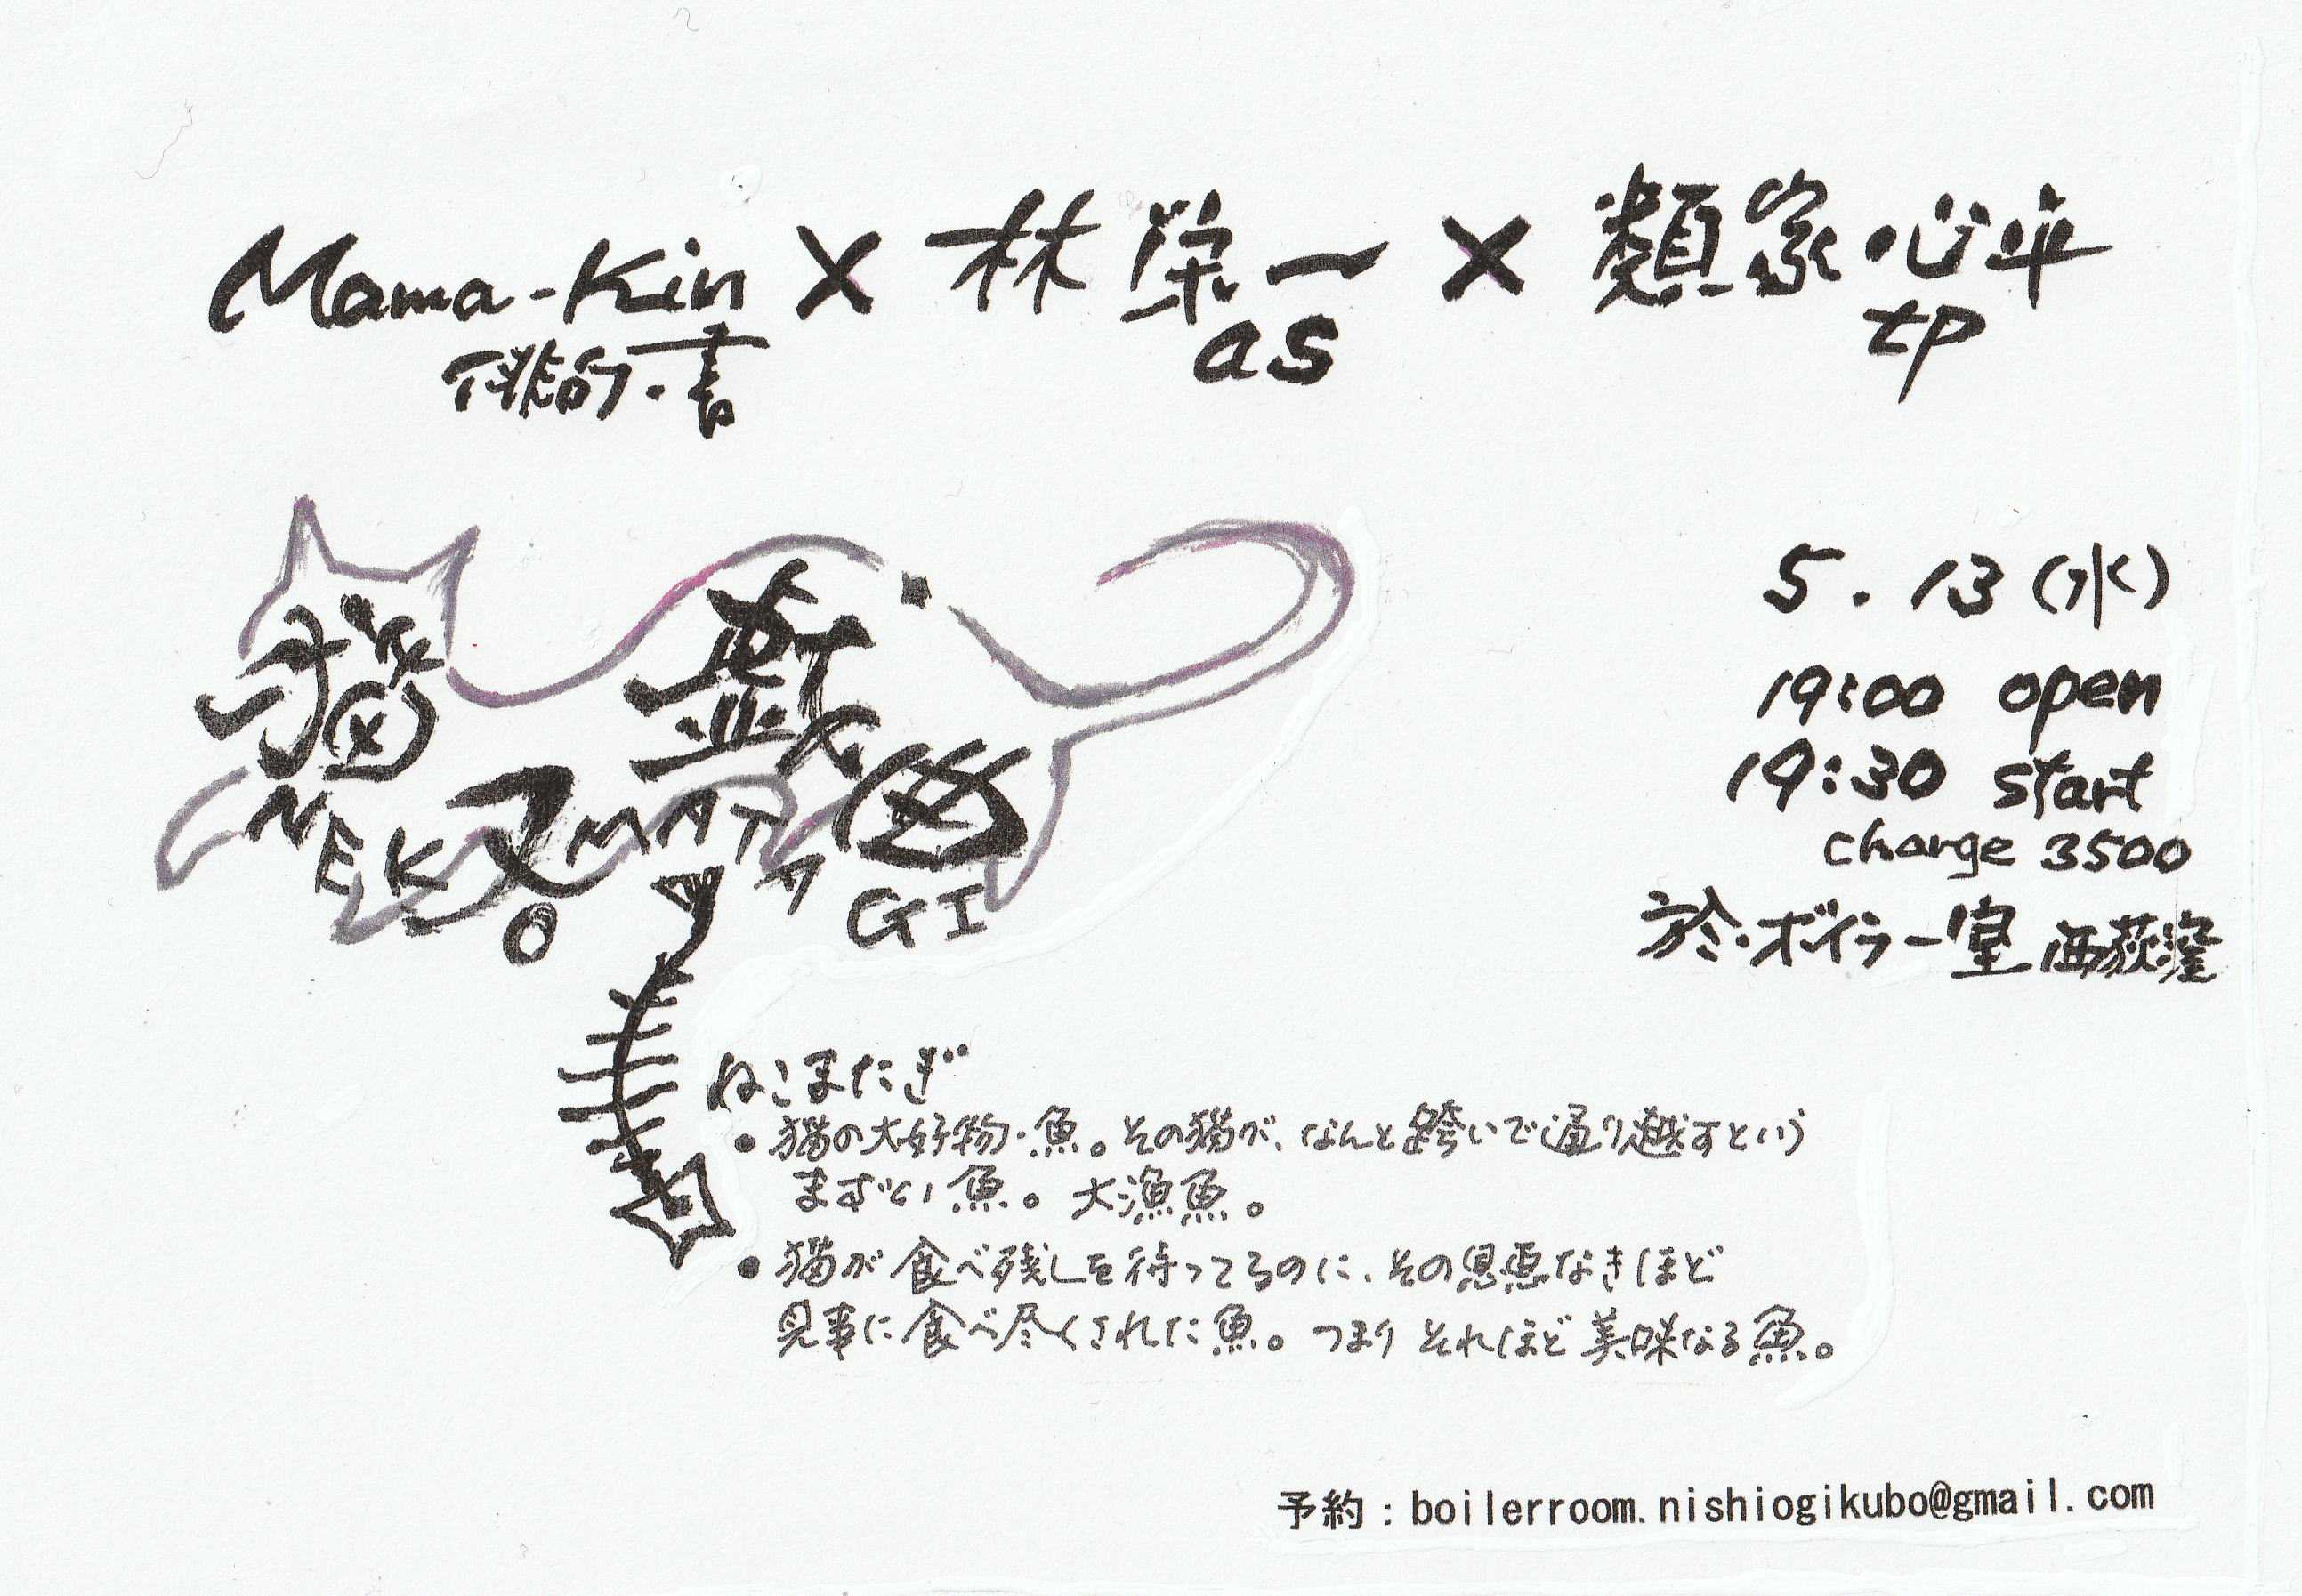 Mama-Kin × 林栄一 × 類家心平
俳句・書 as tp
5.13(水)
19:00 open
19:30 start
charge 3500
於・ボイラー室 西荻窪
猫
NEKOMATAGI
ねこまたぎ
● 猫の大好物・魚。その猫が、なんと跨いで通り越すという
まずい魚。大漁魚。
● 猫が食べ残しを待ってるのに、その恩恵なきほど
見事に食べ尽くされた魚。つまりそれほど美味なる魚。
予約：boilerroom.nishiogikubo@gmail.com